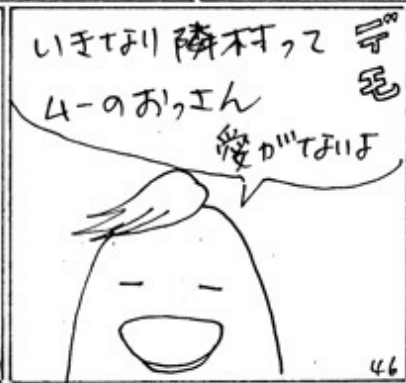 デモ
いきなり隣村って
ムーのおっさん
愛がないよ
46